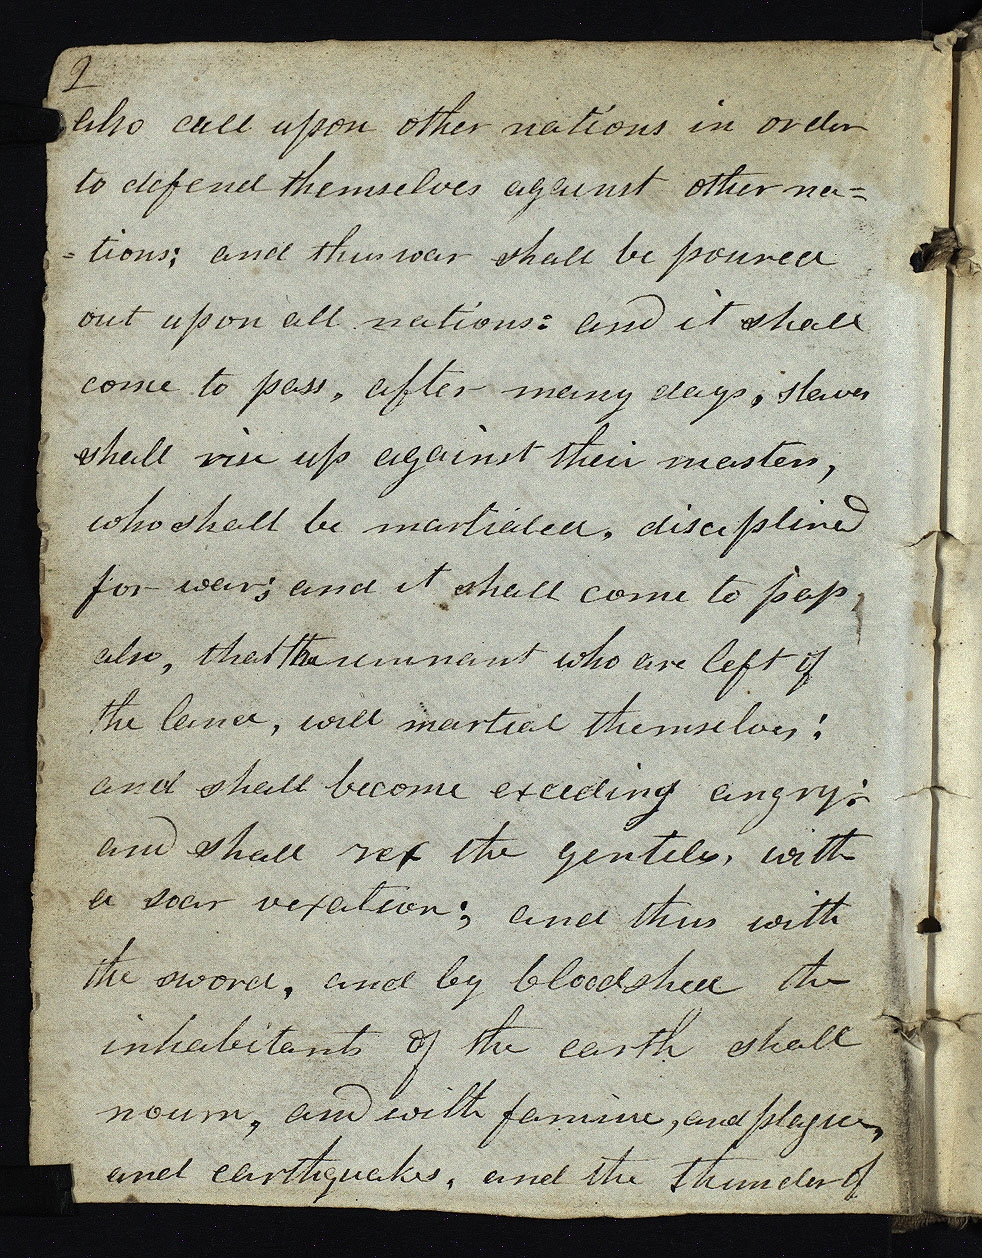 2
also call upon other nations in order
to defend themselves against other na=
=tions; and thus war shall be poured
out upon all nations: and it shall
come to pass, after many days, slaves
shall rise up against their masters,
who shall be martialed, disciplined
for war; and it shall come to pass,
also, that the remnant who are left of
the land, will martial themselves;
and shall become exceding angry;
and shall vex the gentiles, with
a soar vexation; and thus with
the sword, and by bloodshed the
inhabitants of the earth shall
mourn, and with famine, and plague,
and earthquakes, and the thunder of